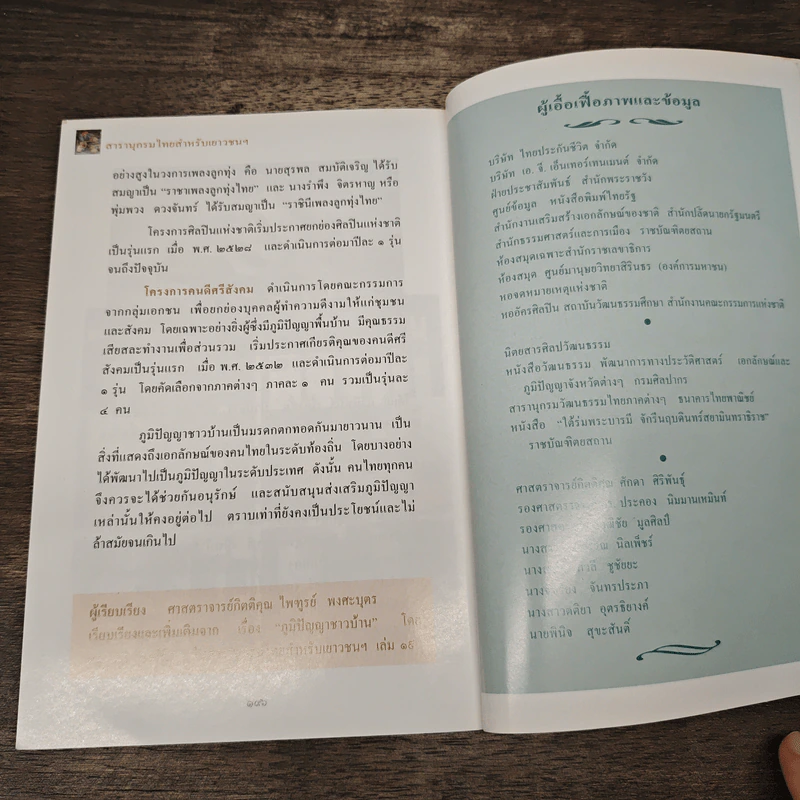 สารานุกรมไทยสำหรับเยาวชนฯ
อย่างสูงในวงการเพลงลูกทุ่ง คือ นายสุรพล สมบัติเจริญ ได้รับ
สมญาเป็น “ราชาเพลงลูกทุ่งไทย” และ นางรำพึง จิตรหาญ หรือ
พุ่มพวง ดวงจันทร์ ได้รับสมญาเป็น “ราชินีเพลงลูกทุ่งไทย”
โครงการศิลปินแห่งชาติเริ่มประกาศยกย่องศิลปินแห่งชาติ
เป็นรุ่นแรก เมื่อ พ.ศ. ๒๕๒๘ และดำเนินการต่อมาปีละ ๑ รุ่น
จนถึงปัจจุบัน
โครงการคนดีศรีสังคม ดำเนินการโดยคณะกรรมการ
จากกลุ่มเอกชน เพื่อยกย่องบุคคลผู้ทำความดีงามให้แก่ชุมชน
และสังคม โดยเฉพาะอย่างยิ่งผู้ซึ่งมีภูมิปัญญาพื้นบ้าน มีคุณธรรม
เสียสละทำงานเพื่อส่วนรวม เริ่มประกาศเกียรติคุณของคนดีศรี
สังคมเป็นรุ่นแรก เมื่อ พ.ศ. ๒๕๓๒ และดำเนินการต่อมาปีละ
๑ รุ่น โดยคัดเลือกจากภาคต่างๆ ภาคละ ๑ คน รวมเป็นรุ่นละ
๔ คน
ภูมิปัญญาชาวบ้านเป็นมรดกตกทอดกันมายาวนาน เป็น
สิ่งที่แสดงถึงเอกลักษณ์ของคนไทยในระดับท้องถิ่น โดยบางอย่าง
ได้พัฒนาไปเป็นภูมิปัญญาในระดับประเทศ ดังนั้น คนไทยทุกคน
จึงควรจะได้ช่วยกันอนุรักษ์ และสนับสนุนส่งเสริมภูมิปัญญา
เหล่านั้นให้คงอยู่ต่อไป ตราบเท่าที่ยังคงเป็นประโยชน์และไม่
ล้าสมัยจนเกินไป
ผู้เรียบเรียง ศาสตราจารย์กิตติคุณ ไพฑูรย์ พงศะบุตร
เรียบเรียงและเพิ่มเติมจาก เรื่อง “ภูมิปัญญาชาวบ้าน” โดย
สำหรับเยาวชนฯ เล่ม ๑๙
ผู้เอื้อเฟื้อภาพและข้อมูล
บริษัท ไทยประกันชีวิต จำกัด
บริษัท เอ. จี. เอ็นเทอร์เทนเมนต์ จำกัด
ฝ่ายประชาสัมพันธ์ สำนักพระราชวัง
ศูนย์ข้อมูล หนังสือพิมพ์ไทยรัฐ
สำนักงานเสริมสร้างเอกลักษณ์ของชาติ สำนักปลัดนายกรัฐมนตรี
สำนักธรรมศาสตร์และการเมือง ราชบัณฑิตยสถาน
ห้องสมุดเฉพาะสำนักราชเลขาธิการ
ห้องสมุด ศูนย์มานุษยวิทยาสิรินธร (องค์การมหาชน)
หอจดหมายเหตุแห่งชาติ
หออัครศิลปิน สถาบันวัฒนธรรมศึกษา สำนักงานคณะกรรมการแห่งชาติ
นิตยสารศิลปวัฒนธรรม
หนังสือวัฒนธรรม พัฒนาการทางประวัติศาสตร์ เอกลักษณ์และ
ภูมิปัญญาจังหวัดต่างๆ กรมศิลปากร
สารานุกรมวัฒนธรรมไทยภาคต่างๆ ธนาคารไทยพาณิชย์
หนังสือ “ใต้ร่มพระบารมี จักรีนฤบดินทร์สยามินทราธิราช”
ราชบัณฑิตยสถาน
ศาสตราจารย์กิตติคุณ ศักดา ศิริพันธุ์
ประคอง นิมมานเหมินท์
มูลศิลป์
นิลเพ็ชร์
ชูชัยยะ
จันทรประภา
อุตรธิยางค์
นายพินิจ สุขะสันติ์